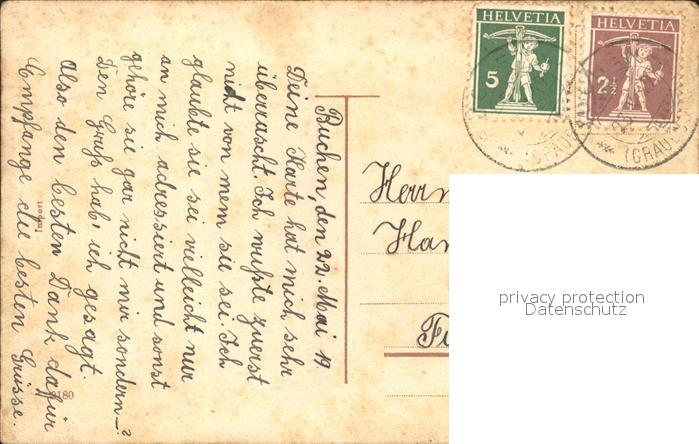 HELVETIA
5
HELVETIA
2½
(GRAU
(GRAU
Buchen, den 22. Mai 19.
Deine Karte hat mich sehr
überrascht. Ich wußte zuerst
nicht von wem sie sei. Ich
glaubte sie sei vielleicht nur
an mich adressiert und sonst
gehöre sie gar nicht mir sondern –?
Den Gruß hab' ich gesagt.
Also den besten Dank dafür
Empfange die besten Grüsse.
Import
180
Herrn
Han
F
privacy protection
Datenschutz